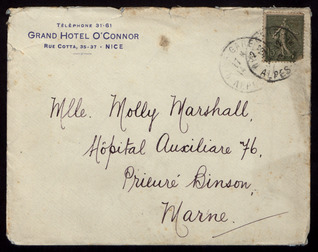 TÉLÉPHONE 31-61
GRAND HOTEL O'CONNOR
RUE COTTA, 35-37 - NICE
ALPES
Mlle. Molly Marshall,
Hôpital Auxiliare 76,
Prieuré Binson,
Marne.